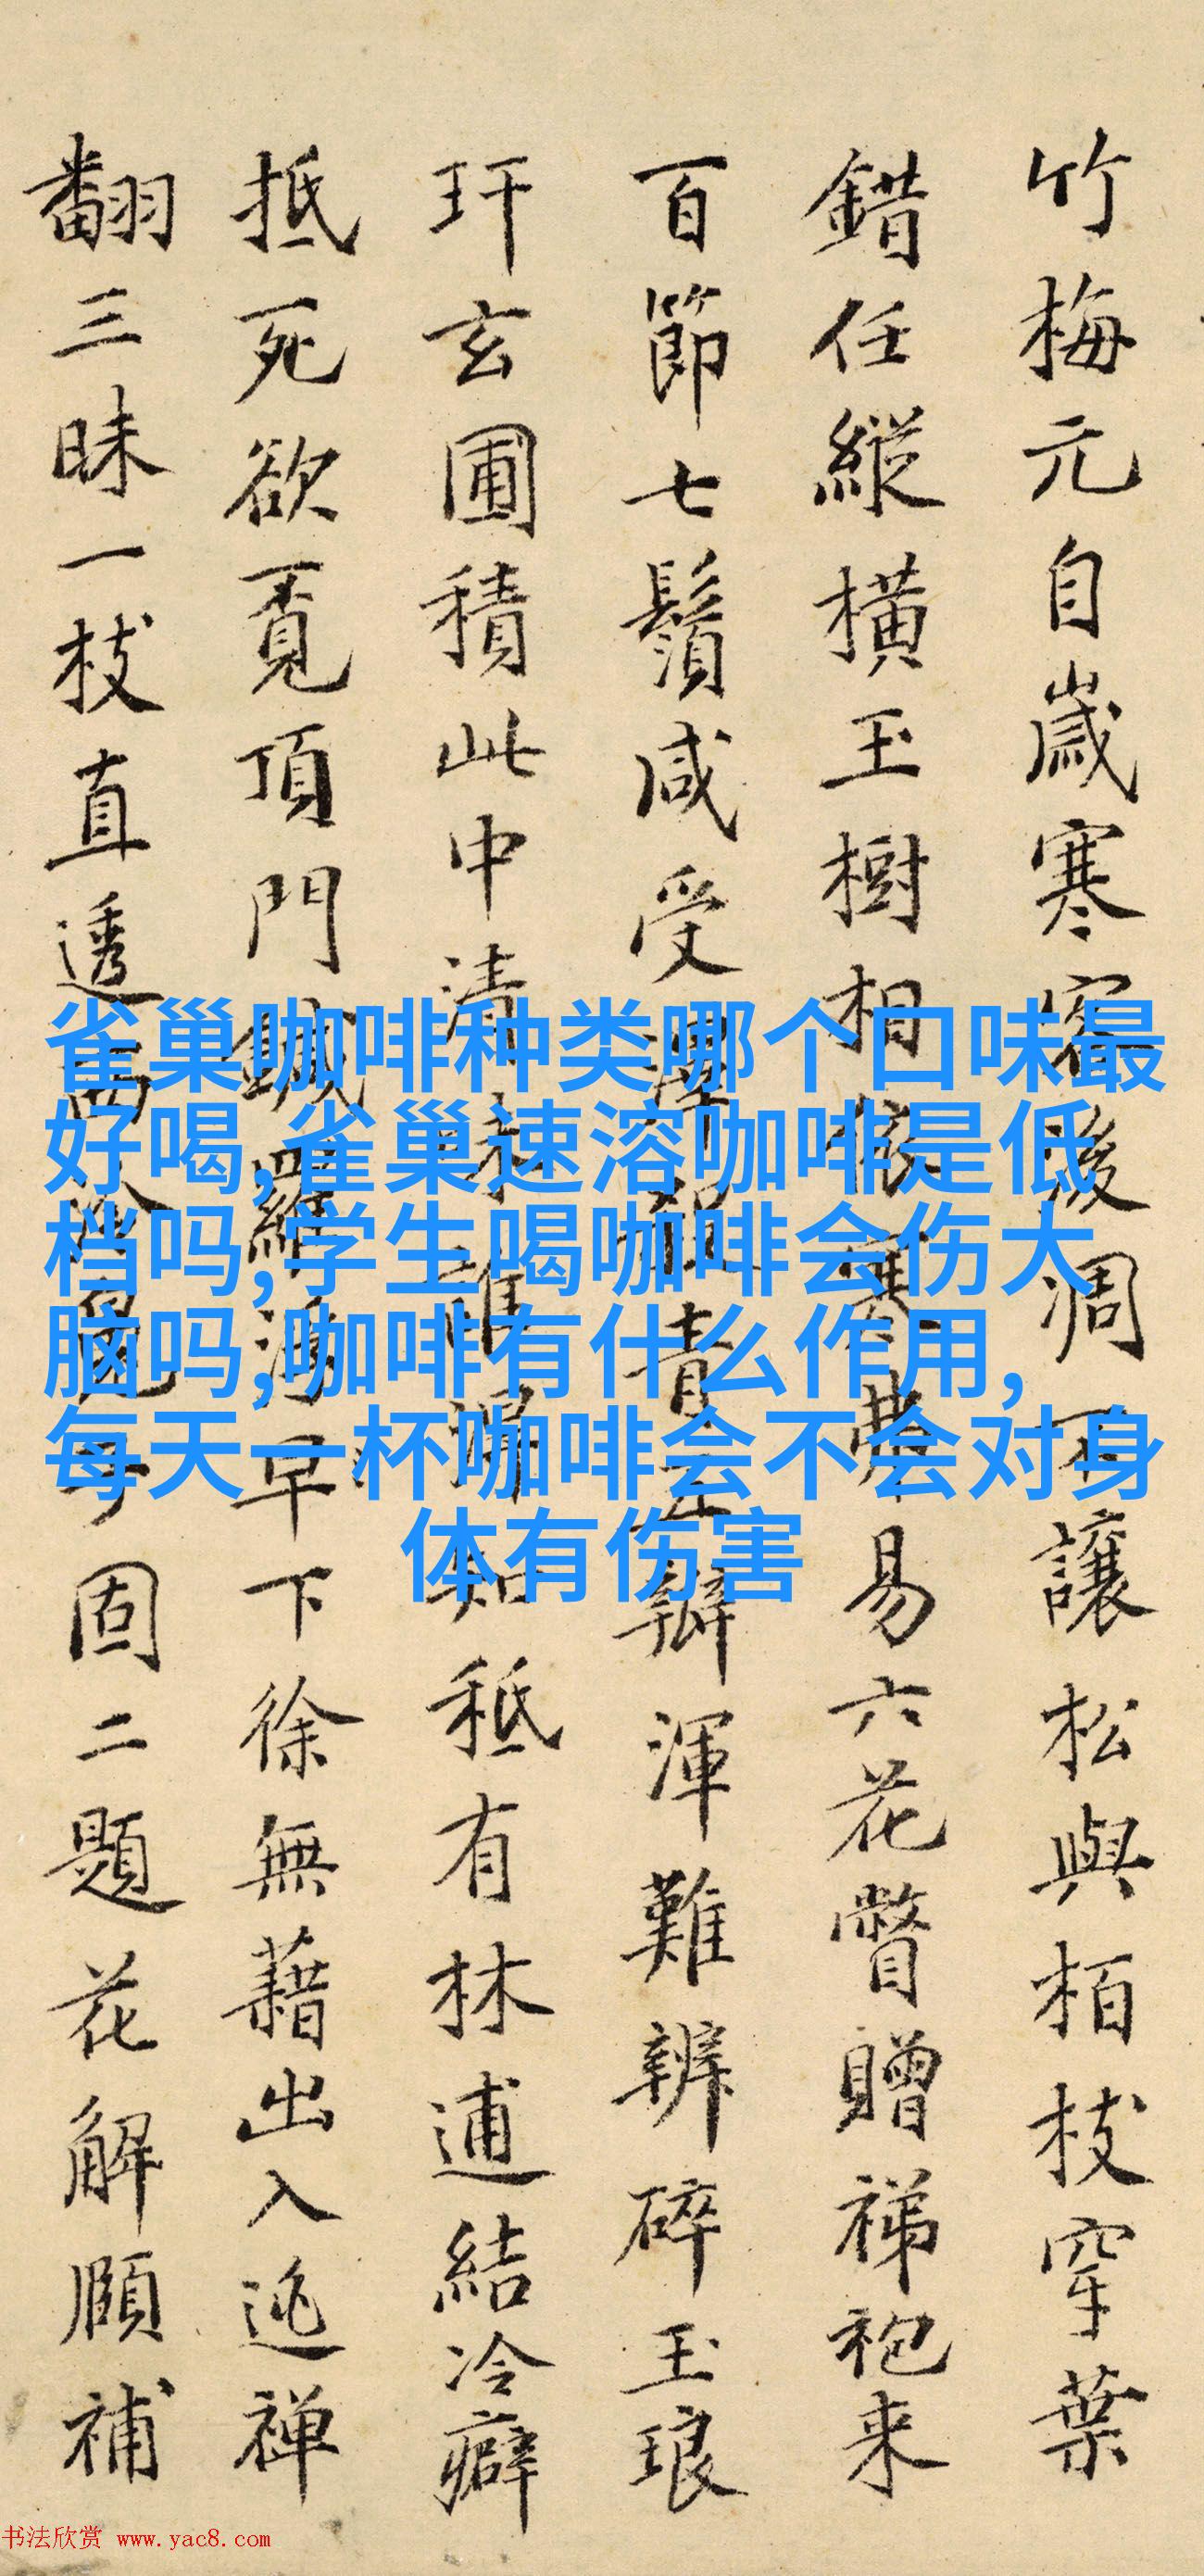 竹梅元自歲寒容後凋不讓松與栢枝穿葉
錯任縱橫玉樹相依寒帶易六花瞥贈祶袍来
百節七鬚咸受渾難辨碎玉琅
玕玄圃積此中清味惟湯知秪有林逋結冷癖
抵死欲覔頂門鍼羅浮早下徐無藉出入逃禅
翻三昧一枝直透固二題花解頤補
雀巢咖啡种类哪个口味最
好喝,雀巢速溶咖啡是低
档吗,学生喝咖啡会伤大
脑吗,咖啡有什么作用,
每天一杯咖啡会不会对身
体有伤害
书法欣赏 www.yac8.com